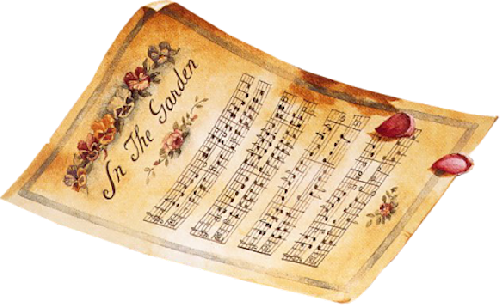 In The Garden